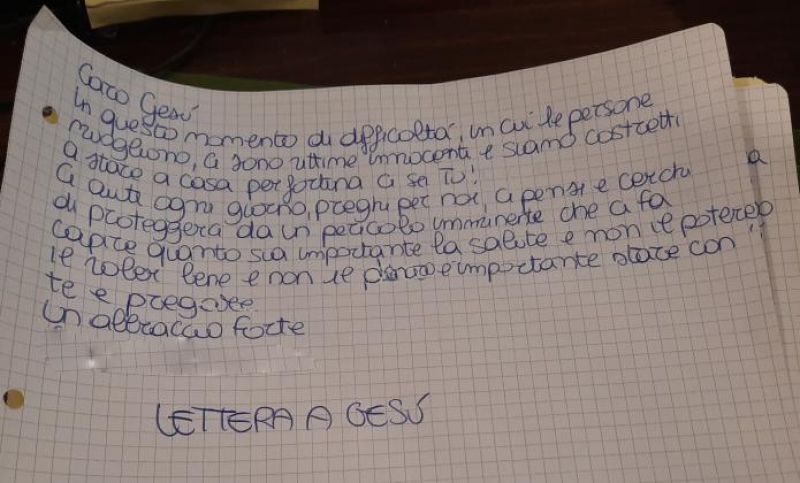 Caro Gesú
In questo momento di difficoltá, in cui le persone
muoiono, ci sono vittime innocenti e siamo costretti
a stare a casa per fortuna ci sei Tu!
Ci aiuti ogni giorno, preghi per noi, ci pensi e cerchi a
di proteggerci da un pericolo imminente che ci fa
capire quanto sia importante la salute e non il potere, o
il voler bene e non il è importante stare con
te e pregare
Un abbraccio forte
LETTERA A GESÚ